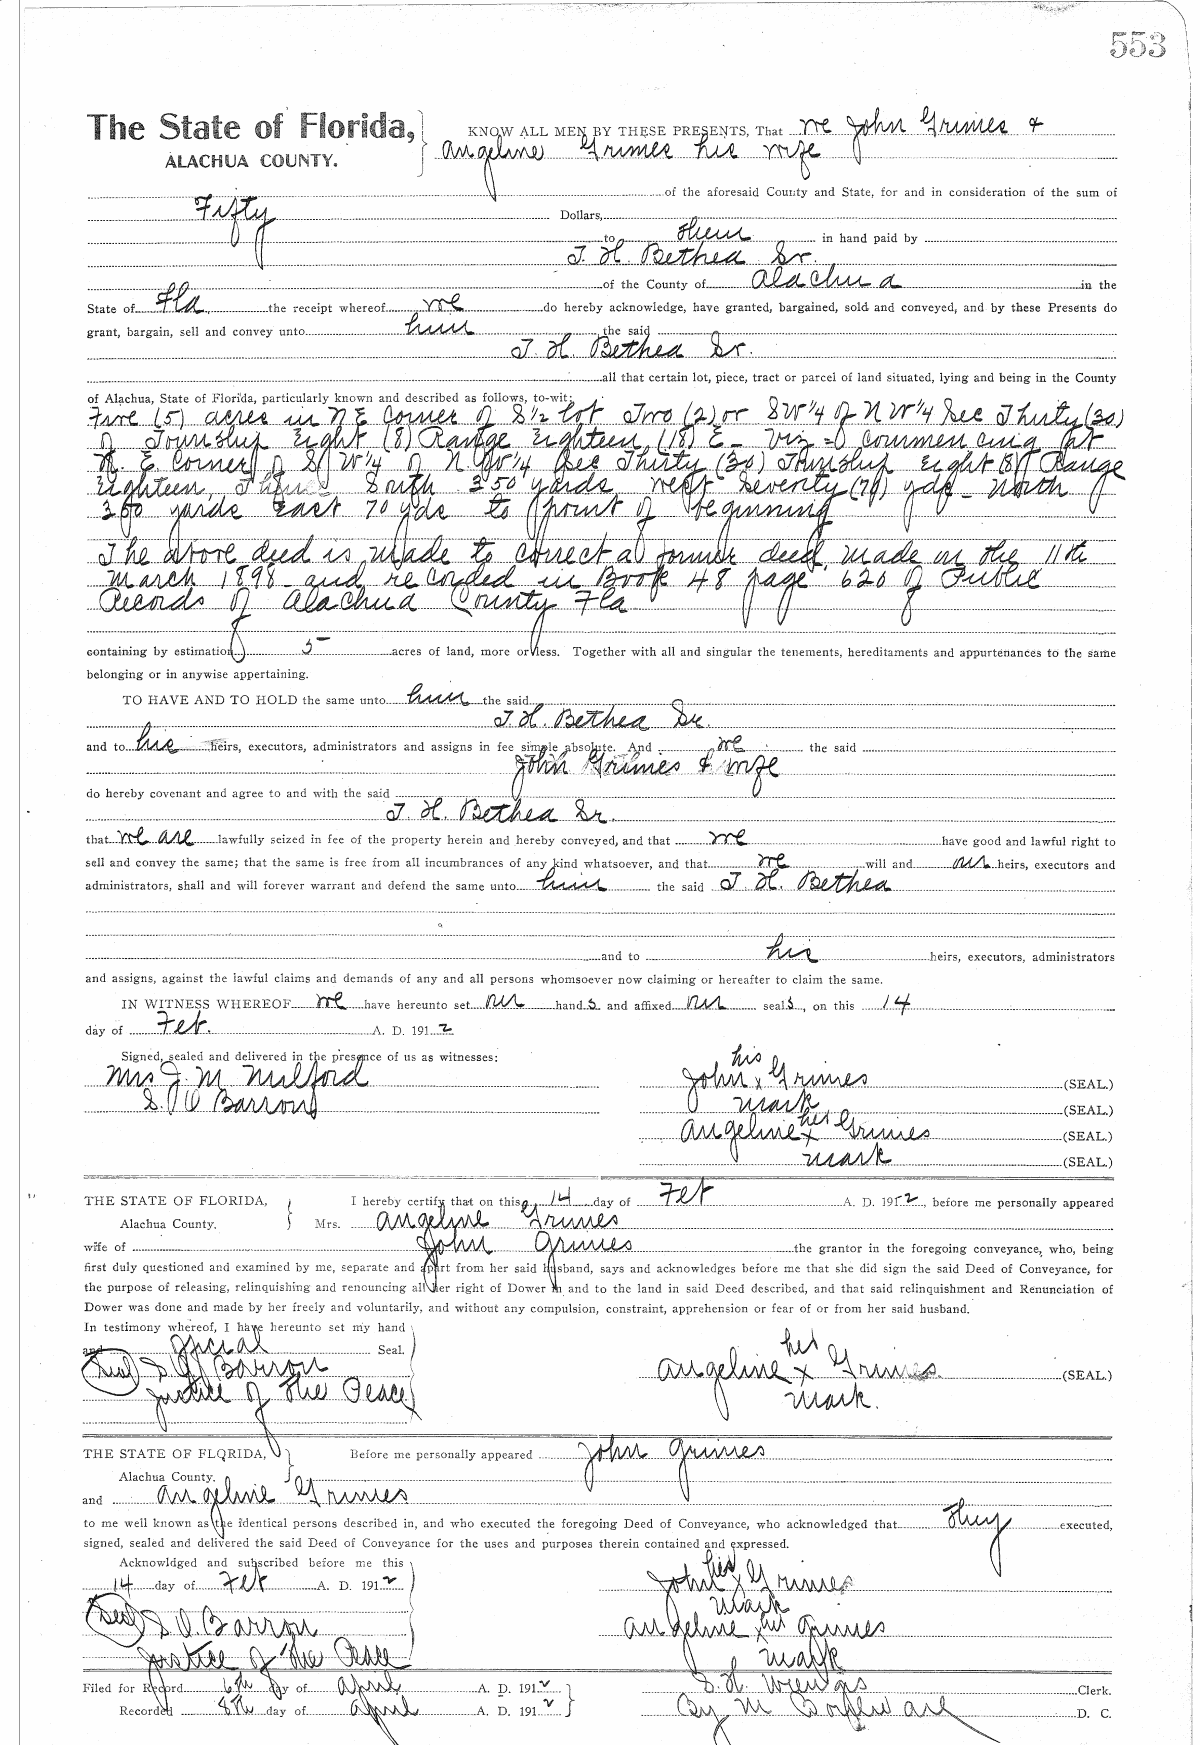 553
The State of Florida,
ALACHUA COUNTY.
KNOW ALL MEN BY THESE PRESENTS, That we John Grimes &
Angeline Grimes his wife
of the aforesaid County and State, for and in consideration of the sum of
Fifty Dollars,
to them in hand paid by
J. H. Bethea Sr.
of the County of Alachua in the
State of Fla the receipt whereof we do hereby acknowledge, have granted, bargained, sold and conveyed, and by these Presents do
grant, bargain, sell and convey unto him the said
J. H. Bethea Sr.
all that certain lot, piece, tract or parcel of land situated, lying and being in the County
of Alachua, State of Florida, particularly known and described as follows, to-wit:
Five (5) acres in N E Corner of S 1/2 lot Two (2) or SW 1/4 of N W 1/4 Sec Thirty (30)
of Township Eight (8) Range Eighteen (18) E - viz = Commencing at
N. E. Corner of S W 1/4 of N W 1/4 Sec Thirty (30) Township Eight (8) Range
Eighteen, South 350 yards west Seventy (70) yds - North
350 yards East 70 yds to point of beginning
The above deed is made to correct a former deed, made on the 11th
March 1898 - and recorded in Book 48 page 620 of Public
Records of Alachua County Fla
containing by estimation 5 acres of land, more or less. Together with all and singular the tenements, hereditaments and appurtenances to the same
belonging or in anywise appertaining.
TO HAVE AND TO HOLD the same unto him the said
J. H. Bethea Sr.
and to his heirs, executors, administrators and assigns in fee simple absolute. And we the said
John Grimes & wife
do hereby covenant and agree to and with the said
J. H. Bethea Sr.
that we are lawfully seized in fee of the property herein and hereby conveyed, and that we have good and lawful right to
sell and convey the same; that the same is free from all incumbrances of any kind whatsoever, and that we will and our heirs, executors and
administrators, shall and will forever warrant and defend the same unto him the said J. H. Bethea
and to his heirs, executors, administrators
and assigns, against the lawful claims and demands of any and all persons whomsoever now claiming or hereafter to claim the same.
IN WITNESS WHEREOF we have hereunto set our hands and affixed our seals, on this 14
day of Feb. A. D. 1912
Signed, sealed and delivered in the presence of us as witnesses:
Mrs J. M Milford
S. O Barron
his
John x Grimes (SEAL.)
mark (SEAL.)
Angeline her x Grimes (SEAL.)
mark (SEAL.)
THE STATE OF FLORIDA,
Alachua County.
I hereby certify that on this 14 day of Feb A. D. 1912, before me personally appeared
Mrs. Angeline Grimes
wife of John Grimes the grantor in the foregoing conveyance, who, being
first duly questioned and examined by me, separate and apart from her said husband, says and acknowledges before me that she did sign the said Deed of Conveyance, for
the purpose of releasing, relinquishing and renouncing all her right of Dower in and to the land in said Deed described, and that said relinquishment and Renunciation of
Dower was done and made by her freely and voluntarily, and without any compulsion, constraint, apprehension or fear of or from her said husband.
In testimony whereof, I have hereunto set my hand
and official Seal.
(Seal) S O Barron
Justice of the Peace
her
Angeline x Grimes (SEAL.)
mark.
THE STATE OF FLORIDA,
Alachua County.
Before me personally appeared John Grimes
and Angeline Grimes
to me well known as the identical persons described in, and who executed the foregoing Deed of Conveyance, who acknowledged that they executed,
signed, sealed and delivered the said Deed of Conveyance for the uses and purposes therein contained and expressed.
Acknowldged and subscribed before me this
14 day of Feb A. D. 1912
(Seal) S. O. Barron
Justice of the Peace
his
John x Grimes
mark
Angeline x her Grimes
mark
Filed for Record 6th day of April A. D. 1912
Recorded 8th day of April A. D. 1912
S. H. Wienges Clerk.
By M D. C.